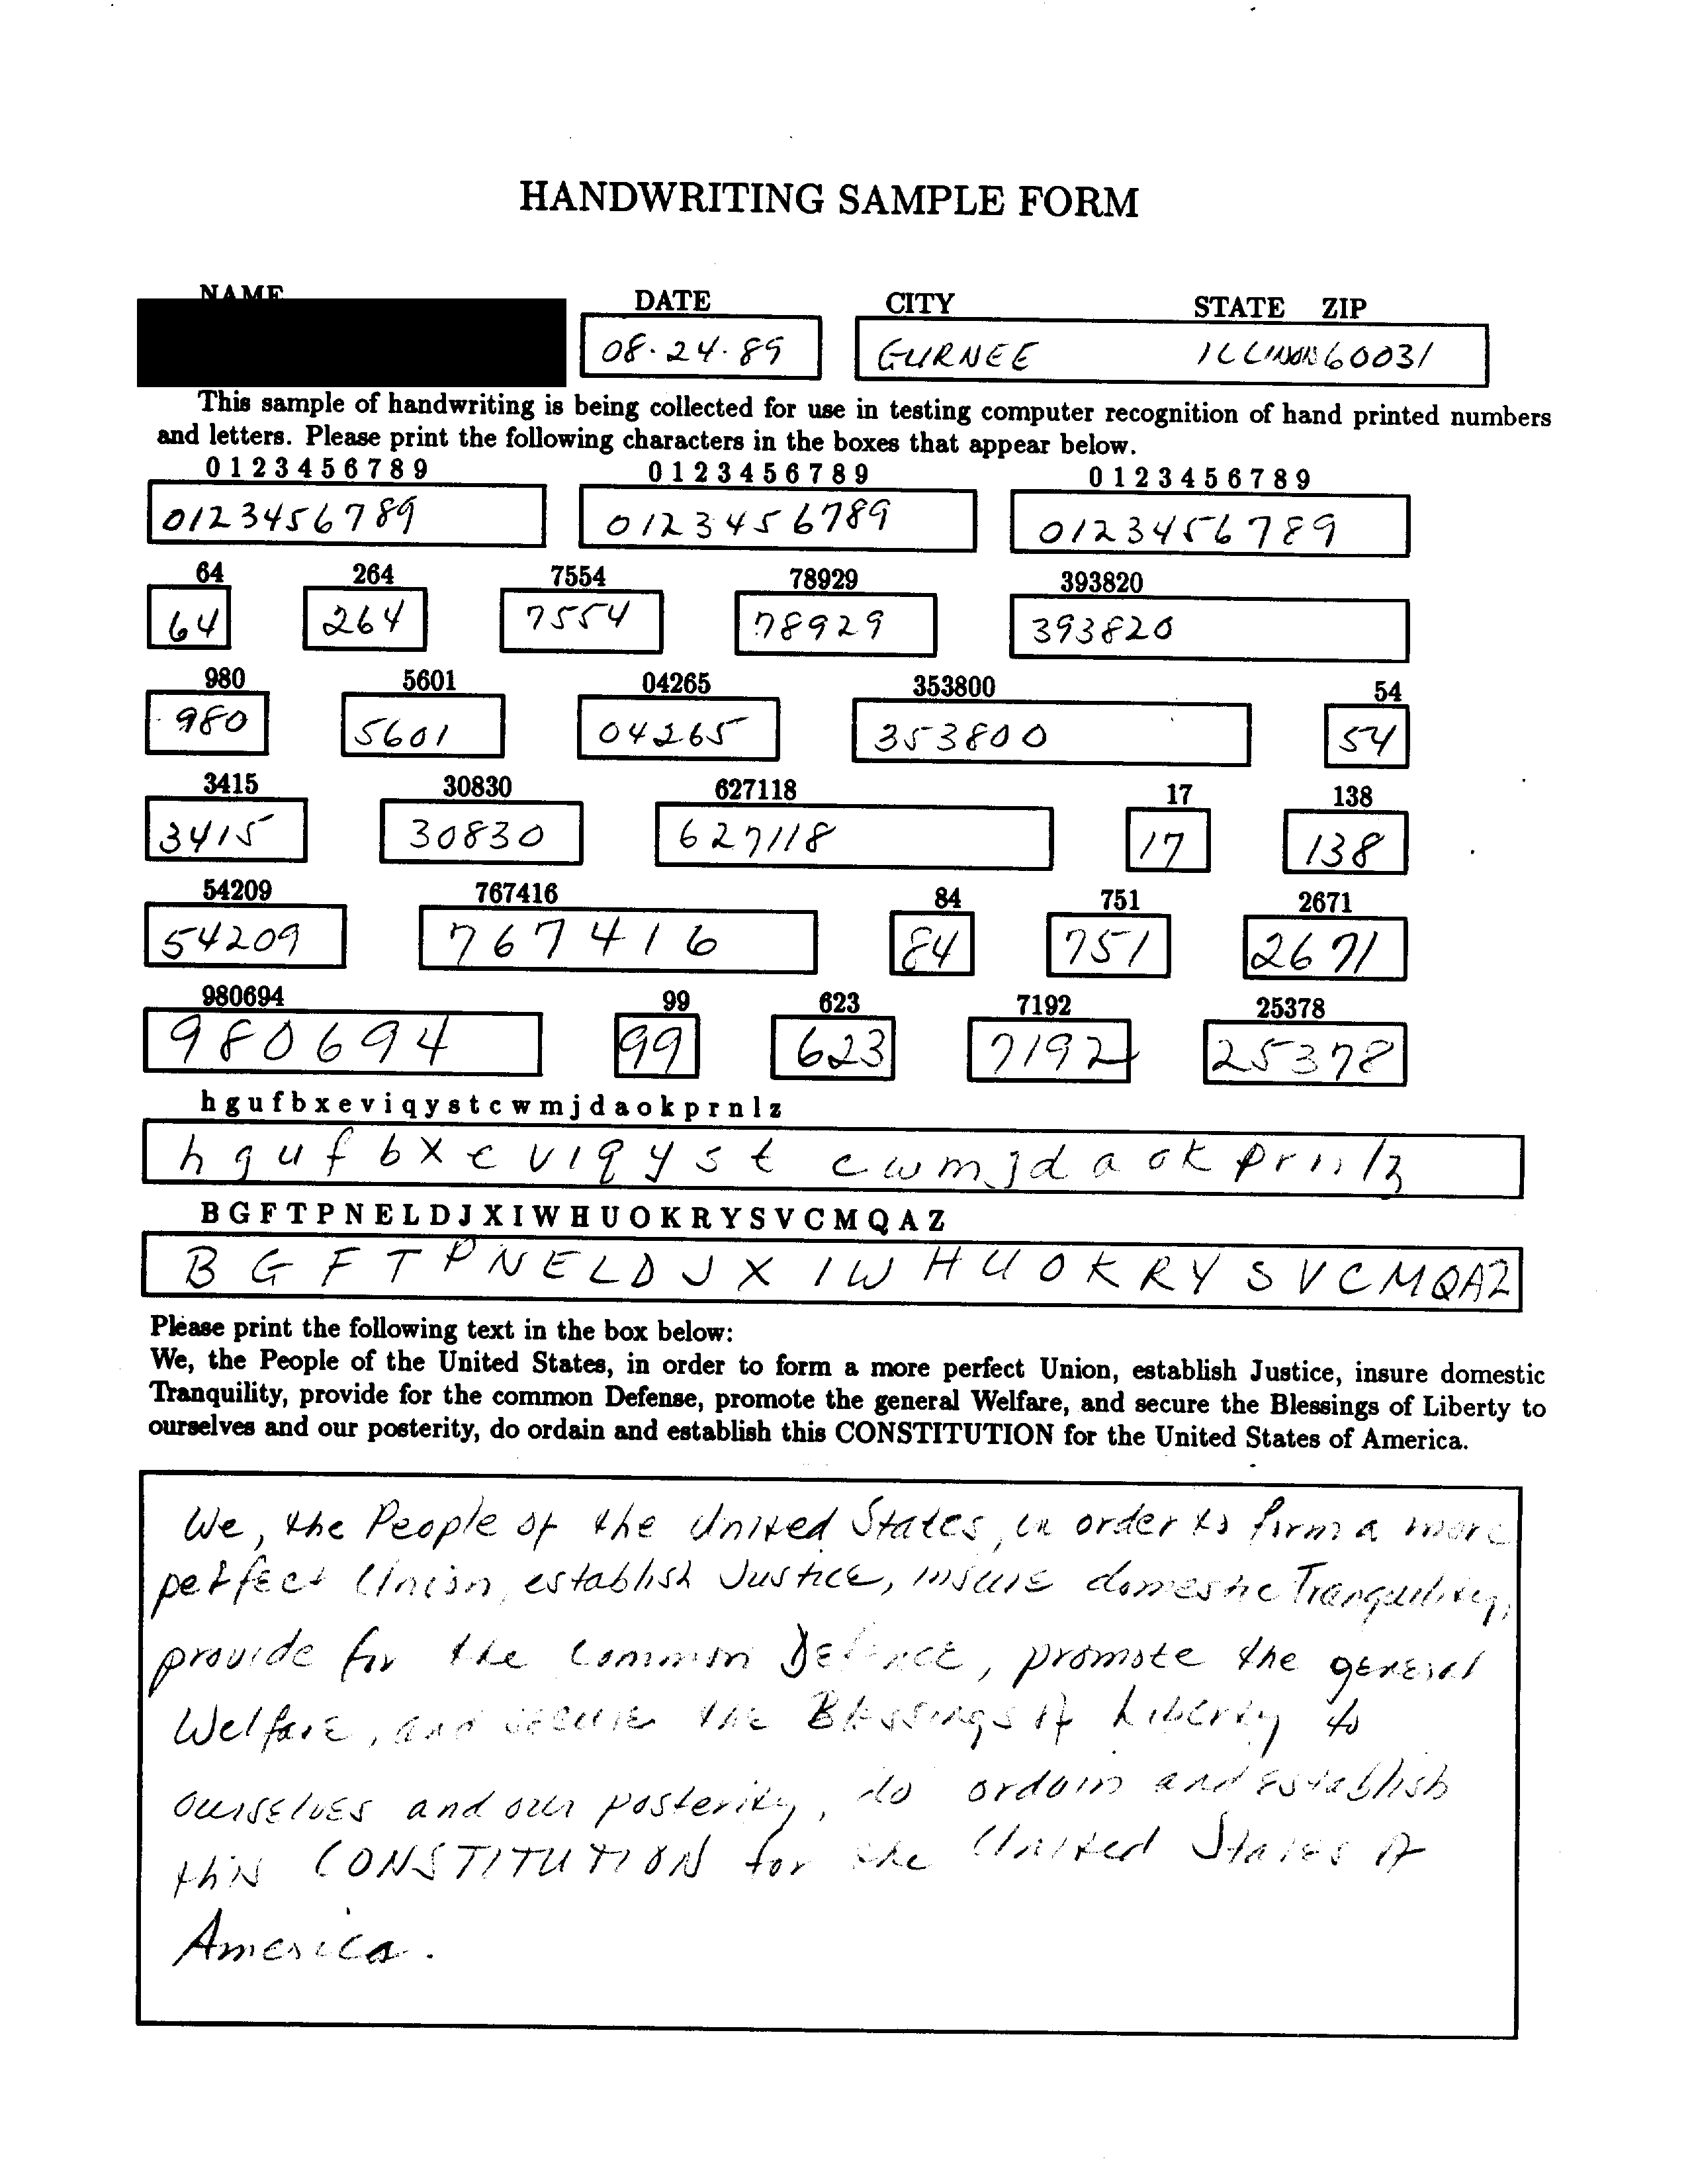 HANDWRITING SAMPLE FORM
NAME DATE CITY STATE ZIP
08-24-89 GURNEE ILLINOIS 60031
This sample of handwriting is being collected for use in testing computer recognition of hand printed numbers
and letters. Please print the following characters in the boxes that appear below.
0 1 2 3 4 5 6 7 8 9 0 1 2 3 4 5 6 7 8 9 0 1 2 3 4 5 6 7 8 9
0123456789 0123456789 0123456789
64 264 7554 78929 393820
64 264 7554 78929 393820
980 5601 04265 353800 54
980 5601 04265 353800 54
3415 30830 627118 17 138
3415 30830 627118 17 138
54209 767416 84 751 2671
54209 767416 84 751 2671
980694 99 623 7192 25378
980694 99 623 7192 25378
h g u f b x e v i q y s t c w m j d a o k p r n l z
h g u f b x e v i q y s t c w m j d a o k p r n l z
B G F T P N E L D J X I W H U O K R Y S V C M Q A Z
B G F T P N E L D J X I W H U O K R Y S V C M Q A Z
Please print the following text in the box below:
We, the People of the United States, in order to form a more perfect Union, establish Justice, insure domestic
Tranquility, provide for the common Defense, promote the general Welfare, and secure the Blessings of Liberty to
ourselves and our posterity, do ordain and establish this CONSTITUTION for the United States of America.
We, the People of the United States, in order to form a more
perfect Union, establish Justice, insure domestic Tranquility,
provide for the common Defence, promote the general
Welfare, and secure the Blessings of Liberty to
ourselves and our posterity, do ordain and establish
this CONSTITUTION for the United States of
America.